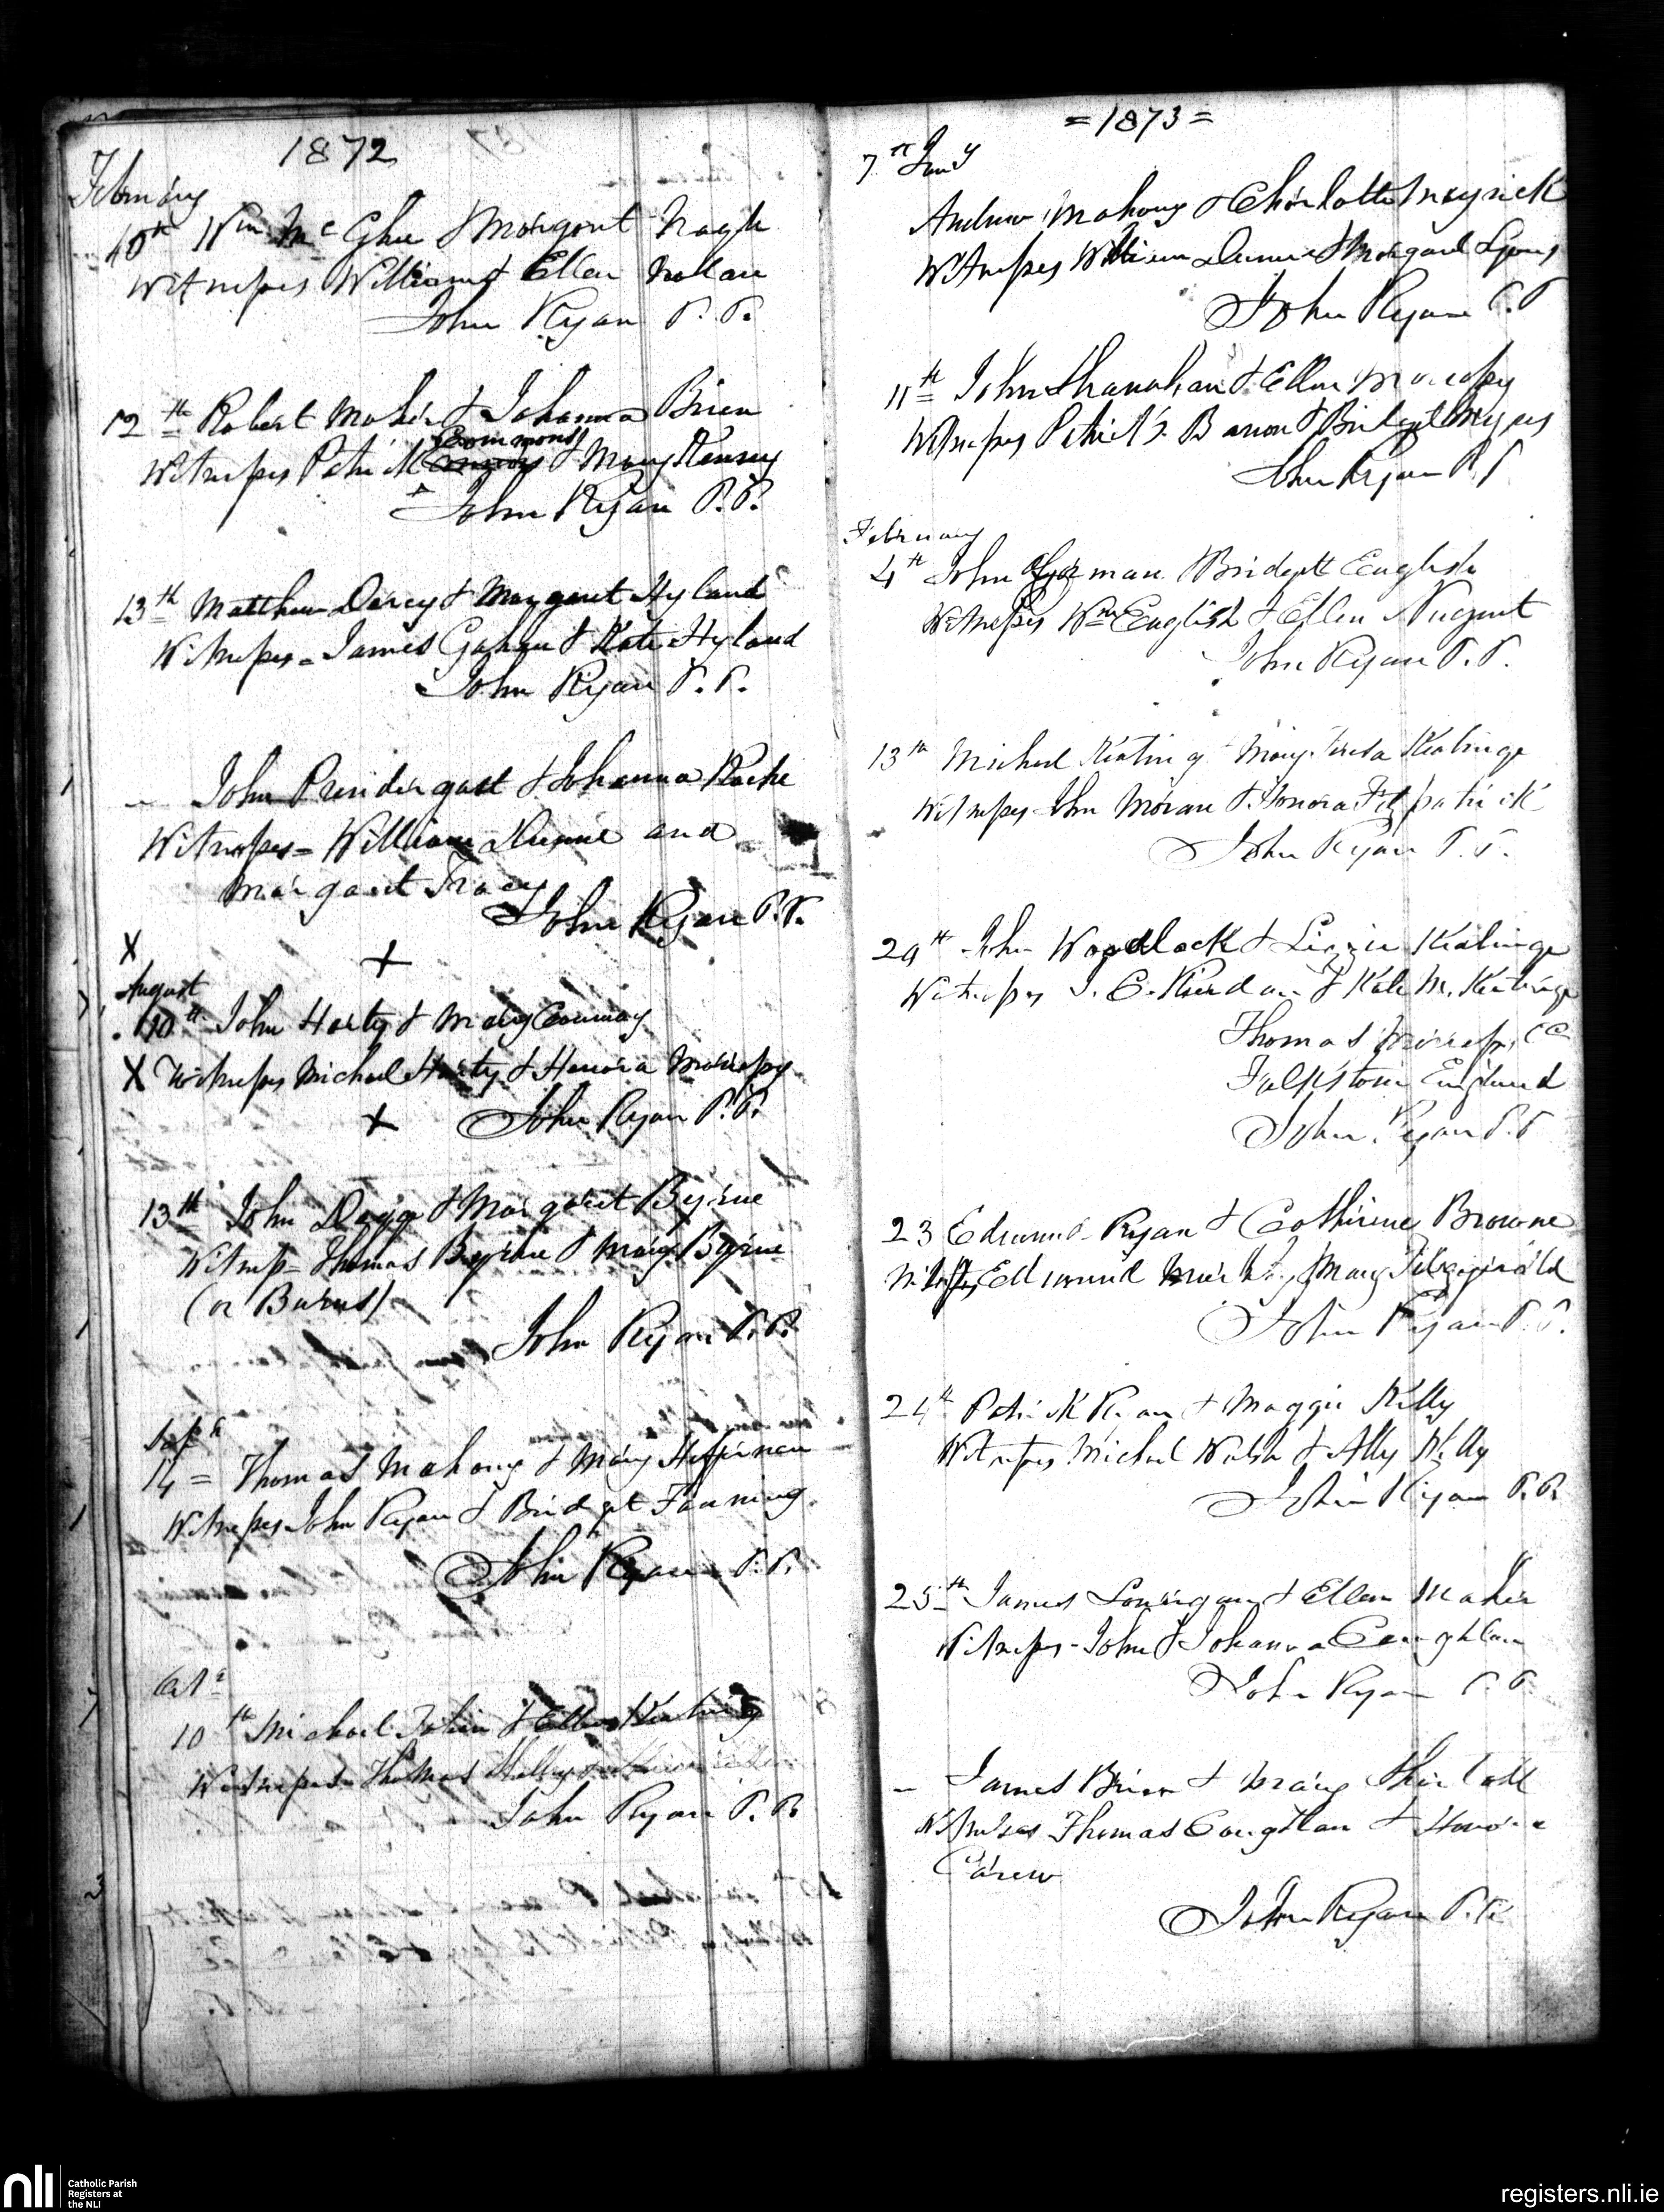 1872
February
10th Wm McGhee & Margaret Nagle
Witnesses William & Ellen Nolan
John Ryan P.P.
12th Robert Maher & Johanna Brien
Commons
Witnesses Patrick & Mary Kenny
John Ryan P.P.
13th Matthew Darcy & Margaret Hyland
Witnesses = James Gahan & Kate Hyland
John Ryan P.P.
– John Prendergast & Johanna Roche
Witnesses = William Dunne and
Margaret Tracy
John Ryan P.P.
X +
August
10th John Harty & Mary
X Witnesses Michael Harty & Honora Morrissy
+ John Ryan P.P.
13th John & Margaret Byrne
Witness = Thomas Byrne & Mary Byrne
(or Burns)
John Ryan P.P.
Sept
14 = Thomas Mahony & Mary Heffernan
Witnesses John Ryan & Bridget Fanning
John Ryan P.P.
Oct
10th Michael Tobin & Ellen Keating
Witnesses Thomas
John Ryan P.P.
= 1873 =
7th Jany
Andrew Mahony & Charlotte Meyrick
Witnesses William Dunne & Margaret Lyons
John Ryan P.P
11th John Shanahan & Ellen Morrissy
Witnesses Patrick Baron & Bridget Meyers
John Ryan P.P
February
4th John Gorman Bridgett English
Witnesses Wm English & Ellen Nugent
John Ryan P.P.
13th Michael Keating Mary Teresa Keatinge
Witnesses John Moran & Honora Fitzpatrick
John Ryan P.P.
20th John Woodlock & Lizzie Keatinge
Witnesses J. C. & Kate M. Keatinge
Thomas CC
Folkstone England
John Ryan P.P
23 Edmund Ryan & Catherine Browne
Witnesses Edmund & Mary Fitzgerald
John Ryan P.P.
24th Patrick Ryan & Maggie Kelly
Witnesses Michael Walsh & Ally Kelly
John Ryan P.P.
25th James Lonergan & Ellen Maher
Witnesses – John & Johanna Coughlan
John Ryan P.P.
– James Brien & Mary
Witnesses Thomas Coughlan & Honora
Carew
John Ryan P.P.
nli
Catholic Parish
Registers at
the NLI
registers.nli.ie